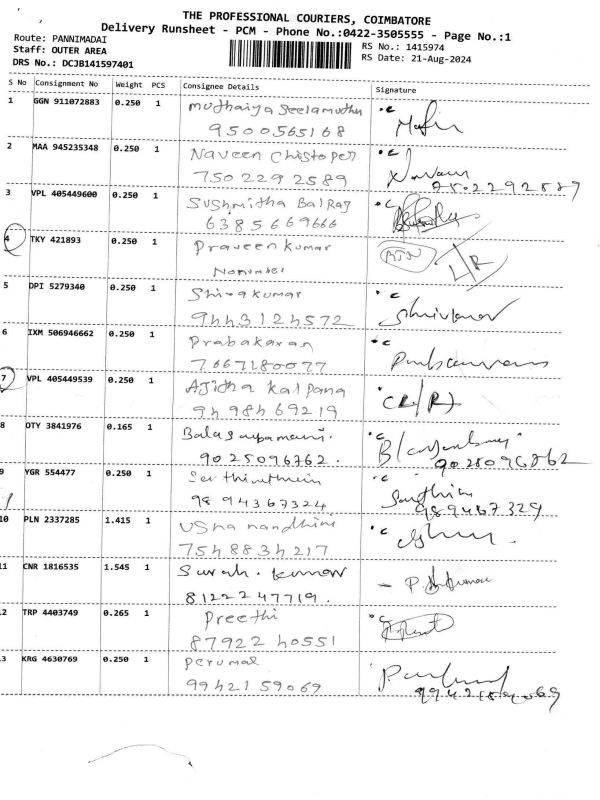 THE PROFESSIONAL COURIERS, COIMBATORE
Delivery Runsheet - PCM - Phone No.:0422-3505555 - Page No.:1
Route: PANNIMADAI
Staff: OUTER AREA
DRS No.: DCJB141597401
RS No.: 1415974
RS Date: 21-Aug-2024
S No Consignment No Weight PCS Consignee Details Signature
1 GGN 911072883 0.250 1 Muthaiya Seelamuthu
9500565168
2 MAA 945235348 0.250 1 Naveen Chistoper
750 229 2589 7502292589
3 VPL 405449600 0.250 1 Sushmitha Balraj
6385669666
4 TKY 421893 0.250 1 Praveen kumar
Nonumber
5 DPI 5279340 0.250 1 Shivakumar
9443124572
6 IXM 506946662 0.250 1 Prabakaran
7667180077
7 VPL 405449539 0.250 1 Ajitha kalpana
9498469219
8 OTY 3841976 0.165 1
9025096762.
9 YGR 554477 0.250 1
9894367324
10 PLN 2337285 1.415 1 Usha nandhini
7548834217
11 CNR 1816535 1.545 1 kumar
8122247719.
12 TRP 4403749 0.265 1 Preethi
8792240551
13 KRG 4630769 0.250 1 perumal
9942159069